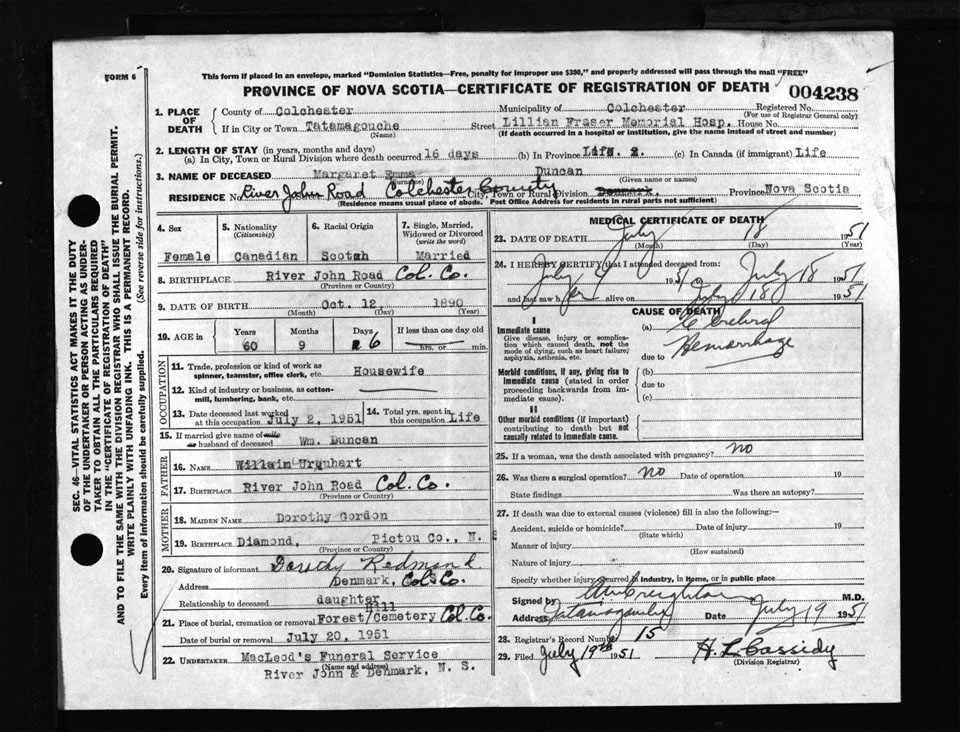 FORM 6
This form if placed in an envelope, marked "Dominion Statistics—Free, penalty for improper use $300," and properly addressed will pass through the mail "FREE"
PROVINCE OF NOVA SCOTIA—CERTIFICATE OF REGISTRATION OF DEATH 004238
SEC. 46—VITAL STATISTICS ACT MAKES IT THE DUTY
OF THE UNDERTAKER OR PERSON ACTING AS UNDER-
TAKER TO OBTAIN ALL THE PARTICULARS REQUIRED
IN THE "CERTIFICATE OF REGISTRATION OF DEATH"
AND TO FILE THE SAME WITH THE DIVISION REGISTRAR WHO SHALL ISSUE THE BURIAL PERMIT.
WRITE PLAINLY WITH UNFADING INK. THIS IS A PERMANENT RECORD.
Every item of information should be carefully supplied. (See reverse side for instructions.)
1. PLACE OF DEATH
County of Colchester Municipality of Colchester Registered No.
(For use of Registrar General only)
If in City or Town Tatamagouche Street Lillian Fraser Memorial Hosp. House No.
(Name) (If death occurred in a hospital or institution, give the name instead of street and number)
2. LENGTH OF STAY (in years, months and days)
(a) In City, Town or Rural Division where death occurred 16 days (b) In Province Life. (c) In Canada (if immigrant) Life
3. NAME OF DECEASED Margaret Emma Duncan
(Surname) (Given name or names)
RESIDENCE No. River John Road Colchester County City, Town or Rural Division Denmark. Province Nova Scotia
(Residence means usual place of abode. Post Office Address for residents in rural parts not sufficient)
4. Sex Female
5. Nationality (Citizenship) Canadian
6. Racial Origin Scotch
7. Single, Married, Widowed or Divorced (write the word) Married
8. BIRTHPLACE River John Road Col. Co.
(Province or Country)
9. DATE OF BIRTH Oct. 12, 1890
(Month) (Day) (Year)
10. AGE in Years 60 Months 9 Days 6 If less than one day old hrs. or min.
OCCUPATION
11. Trade, profession or kind of work as spinner, teamster, office clerk, etc. Housewife
12. Kind of industry or business, as cotton-mill, lumbering, bank, etc.
13. Date deceased last worked at this occupation July 2, 1951
14. Total yrs. spent in this occupation Life
15. If married give name of wife or husband of deceased Wm. Duncan
FATHER
16. NAME Willaim Urquhart
17. BIRTHPLACE River John Road Col. Co.
(Province or Country)
MOTHER
18. MAIDEN NAME Dorothy Gordon
19. BIRTHPLACE Diamond, Pictou Co., N.
(Province or Country)
20. Signature of informant Dorothy Redmond
Address Denmark, Col. Co.
Relationship to deceased daughter
21. Place of burial, cremation or removal Forest/Hill Cemetery Col. Co.
Date of burial or removal July 20, 1951
22. UNDERTAKER MacLeod's Funeral Service
(Name and address)
River John & Denmark, N. S.
MEDICAL CERTIFICATE OF DEATH
23. DATE OF DEATH July 18 1951
(Month) (Day) (Year)
24. I HEREBY CERTIFY that I attended deceased from:
July 4 1951 to July 18 1951
and last saw her alive on July 18 1951
CAUSE OF DEATH
I
Immediate cause
Give disease, injury or complication which caused death, not the mode of dying, such as heart failure; asphyxia, asthenia, etc.
(a) Cerebral
Hemorrhage
due to
Morbid conditions, if any, giving rise to immediate cause (stated in order proceeding backwards from immediate cause).
(b)
due to
(c)
II
Other morbid conditions (if important) contributing to death but not causally related to immediate cause.
25. If a woman, was the death associated with pregnancy? no
26. Was there a surgical operation? no Date of operation 19
State findings Was there an autopsy?
27. If death was due to external causes (violence) fill in also the following:
Accident, suicide or homicide? Date of injury 19
(State which)
Manner of injury
(How sustained)
Nature of injury
Specify whether injury occurred in industry, in home, or in public place
Signed by Creighton M.D.
Address Tatamagouche Date July 19 1951
28. Registrar's Record Number 15
29. Filed July 19th 1951 H. L. Cassidy
(Division Registrar)